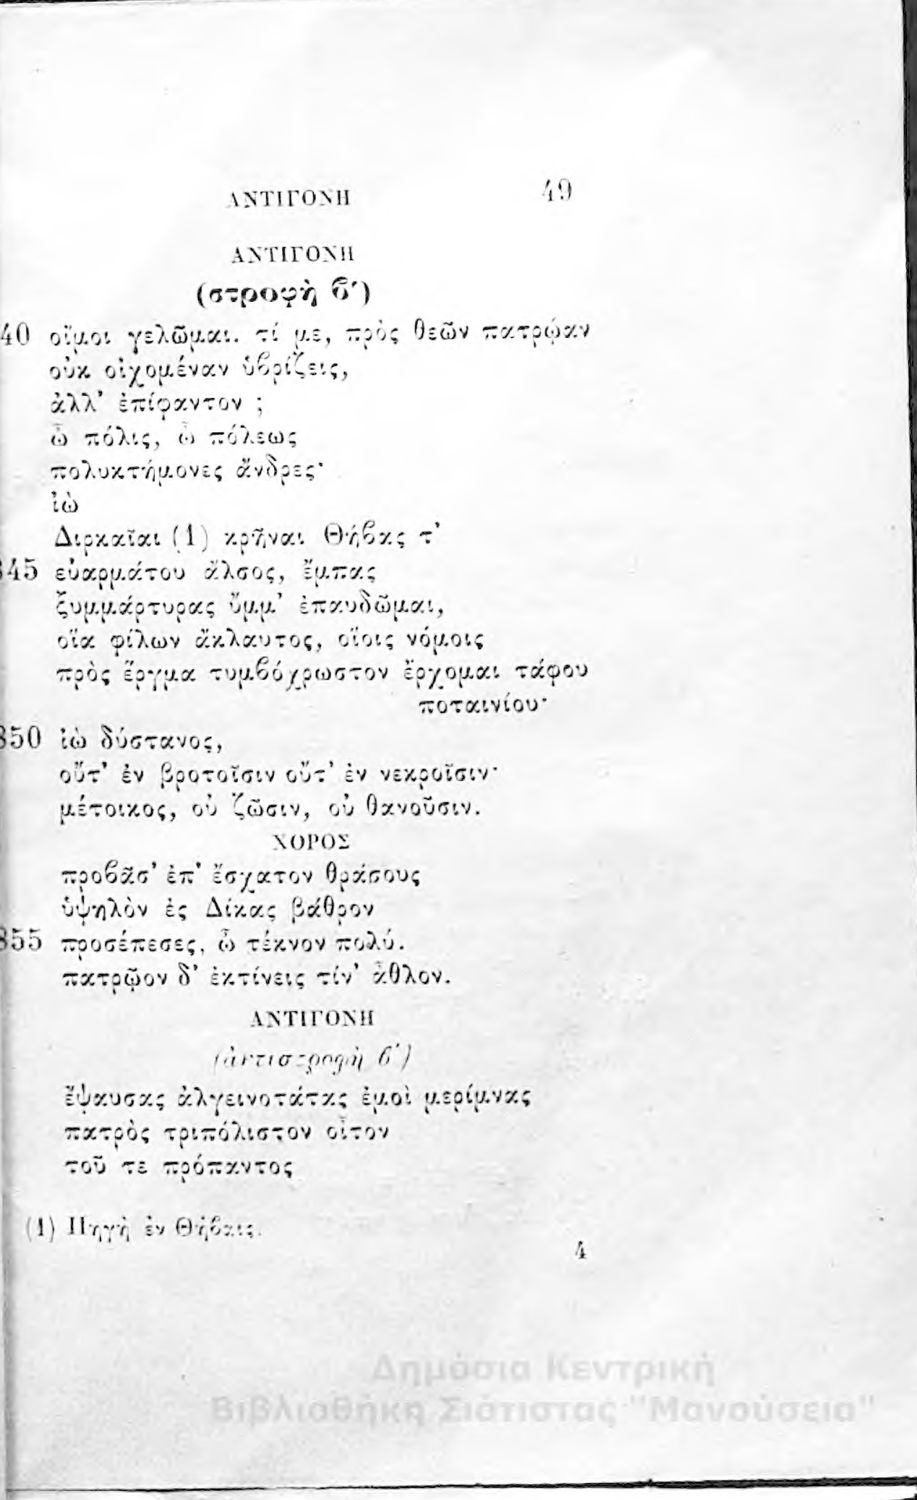 ΑΝΤΙΓΟΝΗ 49
ΑΝΤΙΓΟΝΗ
(στροφὴ ϐ´)
40 οἴμοι γελῶμαι. τί με, πρὸς θεῶν πατρῴαν
οὐκ οἰχομέναν ὑϐρίζεις,
ἀλλ' ἐπίφαντον ;
ὦ πόλις, ὦ πόλεως
πολυκτήμονες ἄνδρες·
ἰὼ
Διρκαῖαι (1) κρῆναι Θήϐας τ'
345 εὐαρμάτου ἄλσος, ἔμπας
ξυμμάρτυρας ὔμμ' ἐπαυδῶμαι,
οἵα φίλων ἄκλαυτος, οἵοις νόμοις
πρὸς ἕργμα τυμϐόχρωστον ἔρχομαι τάφου
ποταινίου·
350 ἰὼ δύστανος,
οὔτ' ἐν βροτοῖσιν οὔτ' ἐν νεκροῖσιν·
μέτοικος, οὐ ζῶσιν, οὐ θανοῦσιν.
ΧΟΡΟΣ
προϐᾶσ' ἐπ' ἔσχατον θράσους
ὑψηλὸν ἐς Δίκας βάθρον
355 προσέπεσες, ὦ τέκνον πολύ.
πατρῷον δ' ἐκτίνεις τίν' ἆθλον.
ΑΝΤΙΓΟΝΗ
(ἀντιστροφὴ ϐ´)
ἔψαυσας ἀλγεινοτάτας ἐμοὶ μερίμνας
πατρὸς τριπόλιστον οἶτον
τοῦ τε πρόπαντος
(1) Πηγὴ ἐν Θήϐαις.
4
Δημόσια Κεντρική
Βιβλιοθήκη Σιάτιστας "Μανούσεια"